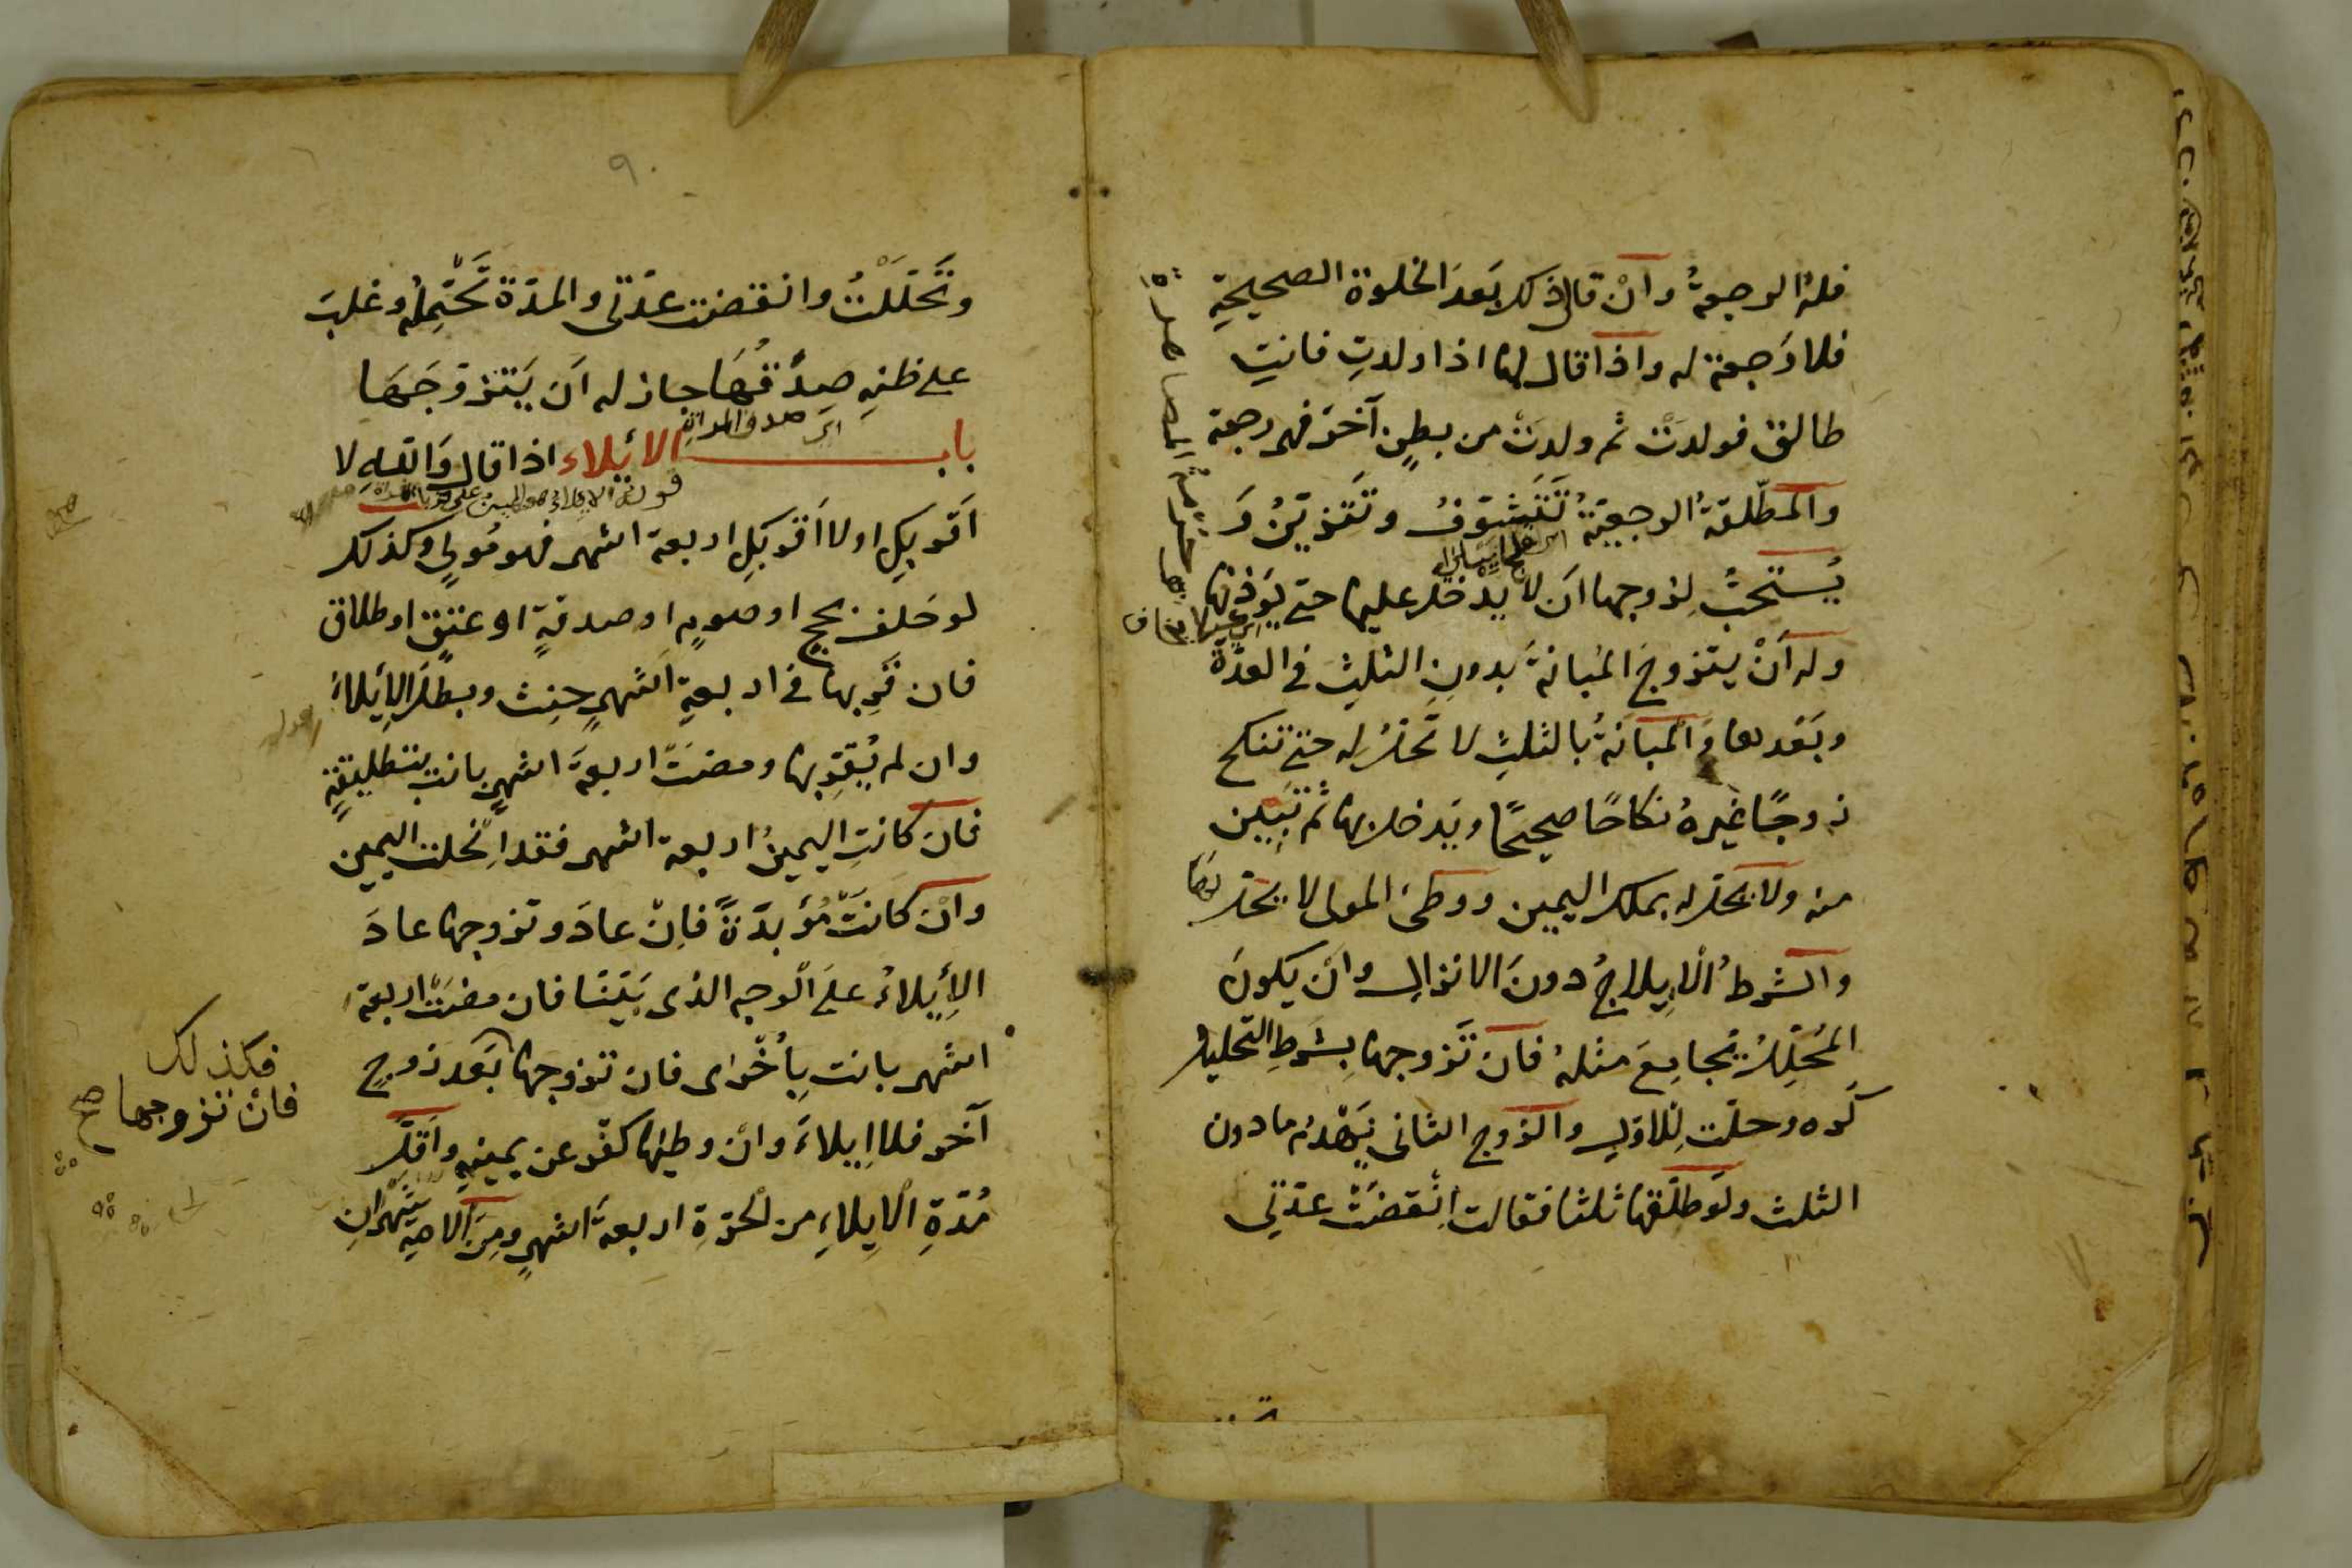 فله الرجعة وان قال ذلك بعد الخلوة الصحيحة
فلا رجعة له واذا قال لها اذا ولدت فانت
طالق فولدت ثم ولدت من بطن آخر فهى رجعة
والمطلقة الرجعية تتشوف وتتزين و
يستحب لزوجها ان لا يدخل عليها حتى يؤذنها
وله ان يتزوج المبانة بدون الثلث في العدة
وبعدها والمبانة بالثلث لا تحل له حتى تنكح
زوجًا غيره نكاحًا صحيحًا ويدخل بها ثم تبين
منه ولا يحل له بملك اليمين ووطئ المولى لا يحلها
والشرط الايلاج دون الانزال وان يكون
المحلل يجامع مثله فان تزوجها بشرط التحليل
كره وحلت للاول والزوج الثانى يهدم ما دون
الثلث ولو طلقها ثلثا فقالت انقضت عدتى
٩٠
وتحللت وانقضت عدتى والمدة تحتمله وغلب
على ظنه صدقها جاز له ان يتزوجها
اى صدق المراة
باب الايلاء اذا قال والله لا
قوله الايلاء هو اليمين على
اقربك او لا اقربك اربعة اشهر فهو مولى وكذلك
لو حلف بحج او صوم او صدقة او عتق او طلاق
فان قربها في اربعة اشهر حنث وبطل الايلاء
وان لم يقربها ومضت اربعة اشهر بانت بتطليقة
فان كانت اليمين اربعة اشهر فقد انحلت اليمين
وان كانت مؤبدة فان عاد وتزوجها عاد
الايلاء على الوجه الذى بيننا فان مضت اربعة
اشهر بانت باخرى فان تزوجها بعد زوج
آخر فلا ايلاء وان وطئها كفر عن يمينه واقل
مدة الايلاء من الحرة اربعة اشهر ومن الامة شهران
فكذلك
فان تزوجها صح